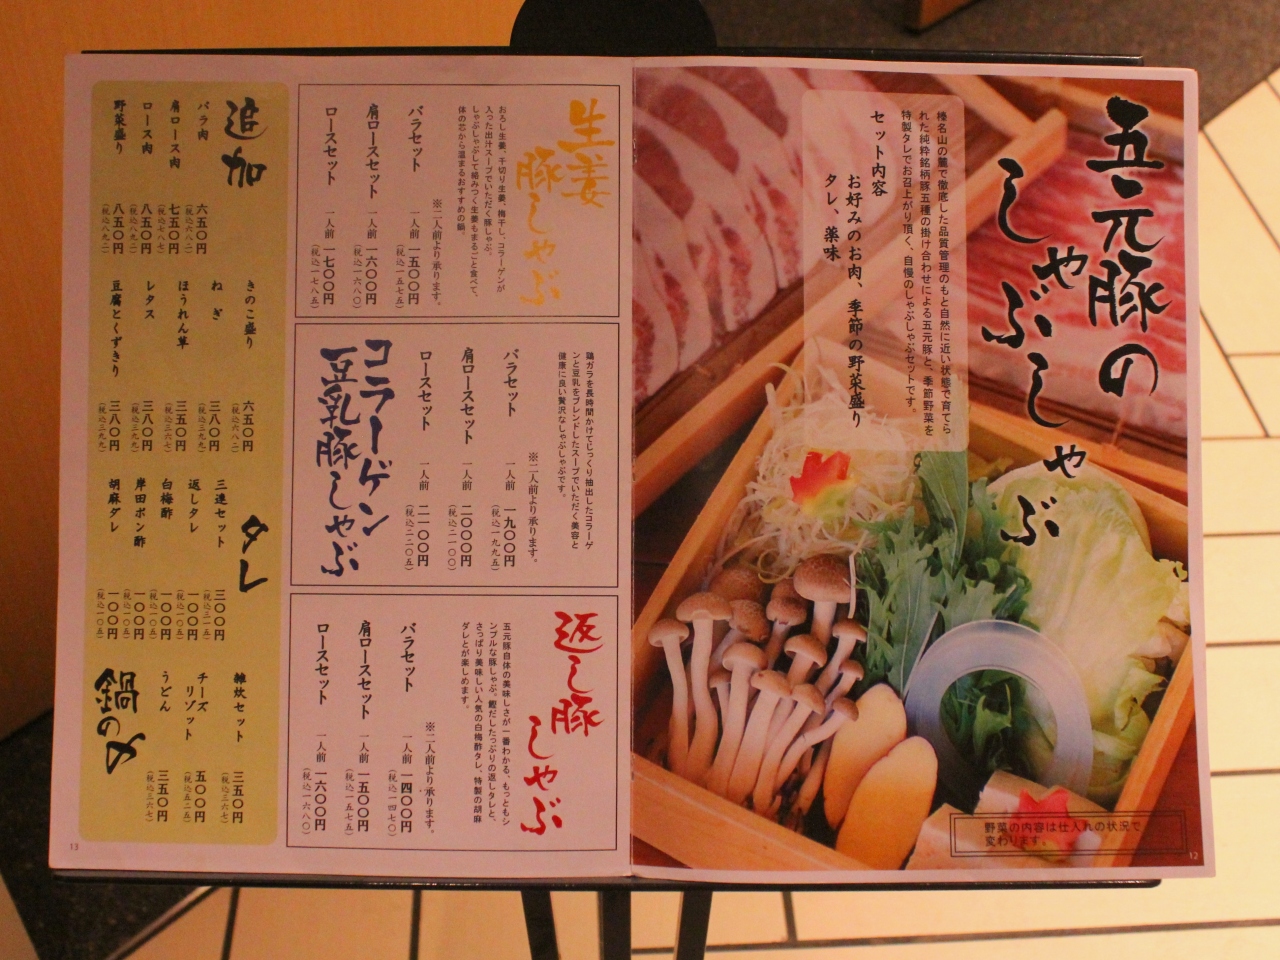 五元豚の
しゃぶしゃぶ
榛名山の麓で徹底した品質管理のもと自然に近い状態で育てら
れた純粋銘柄豚五種の掛け合わせによる五元豚と、季節野菜を
特製タレでお召上がり頂く、自慢のしゃぶしゃぶセットです。
セット内容
お好みのお肉、季節の野菜盛り
タレ、薬味
野菜の内容は仕入れの状況で
変わります。
12
生姜
豚しゃぶ
おろし生姜、千切り生姜、梅干し、コラーゲンが
入った出汁スープでいただく豚しゃぶ。
しゃぶしゃぶして絡みつく生姜もまるごと食べて、
体の芯から温まるおすすめの鍋。
※二人前より承ります。
バラセット 一人前 一五〇〇円
(税込一五七五)
肩ロースセット 一人前 一六〇〇円
(税込一六八〇)
ロースセット 一人前 一七〇〇円
(税込一七八五)
鶏ガラを長時間かけてじっくり抽出したコラーゲ
ンと豆乳をブレンドしたスープでいただく美容と
健康に良い贅沢なしゃぶしゃぶです。
※二人前より承ります。
バラセット 一人前 一九〇〇円
(税込一九九五)
肩ロースセット 一人前 二〇〇〇円
(税込二一〇〇)
ロースセット 一人前 二一〇〇円
(税込二二〇五)
コラーゲン
豆乳豚しゃぶ
返し豚
しゃぶ
五元豚自体の美味しさが一番わかる、もっともシ
ンプルな豚しゃぶ。鰹だしたっぷりの返しタレと、
さっぱり美味しい人気の白梅酢タレ、特製の胡麻
ダレとが楽しめます。
※二人前より承ります。
バラセット 一人前 一四〇〇円
(税込一四七〇)
肩ロースセット 一人前 一五〇〇円
(税込一五七五)
ロースセット 一人前 一六〇〇円
(税込一六八〇)
追加
バラ肉 六五〇円
(税込六八二)
肩ロース肉 七五〇円
(税込七八七)
ロース肉 八五〇円
(税込八九二)
野菜盛り 八五〇円
(税込八九二)
きのこ盛り 六五〇円
(税込六八二)
ねぎ 三八〇円
(税込三九九)
ほうれん草 三五〇円
(税込三六七)
レタス 三八〇円
(税込三九九)
豆腐とくずきり 三八〇円
(税込三九九)
タレ
三連セット 三〇〇円
(税込三一五)
返しタレ 一〇〇円
(税込一〇五)
白梅酢 一〇〇円
(税込一〇五)
岸田ポン酢 一〇〇円
(税込一〇五)
胡麻ダレ 一〇〇円
(税込一〇五)
雑炊セット 三五〇円
(税込三六七)
チーズ
リゾット 五〇〇円
(税込五二五)
うどん 三五〇円
(税込三六七)
鍋の〆
13